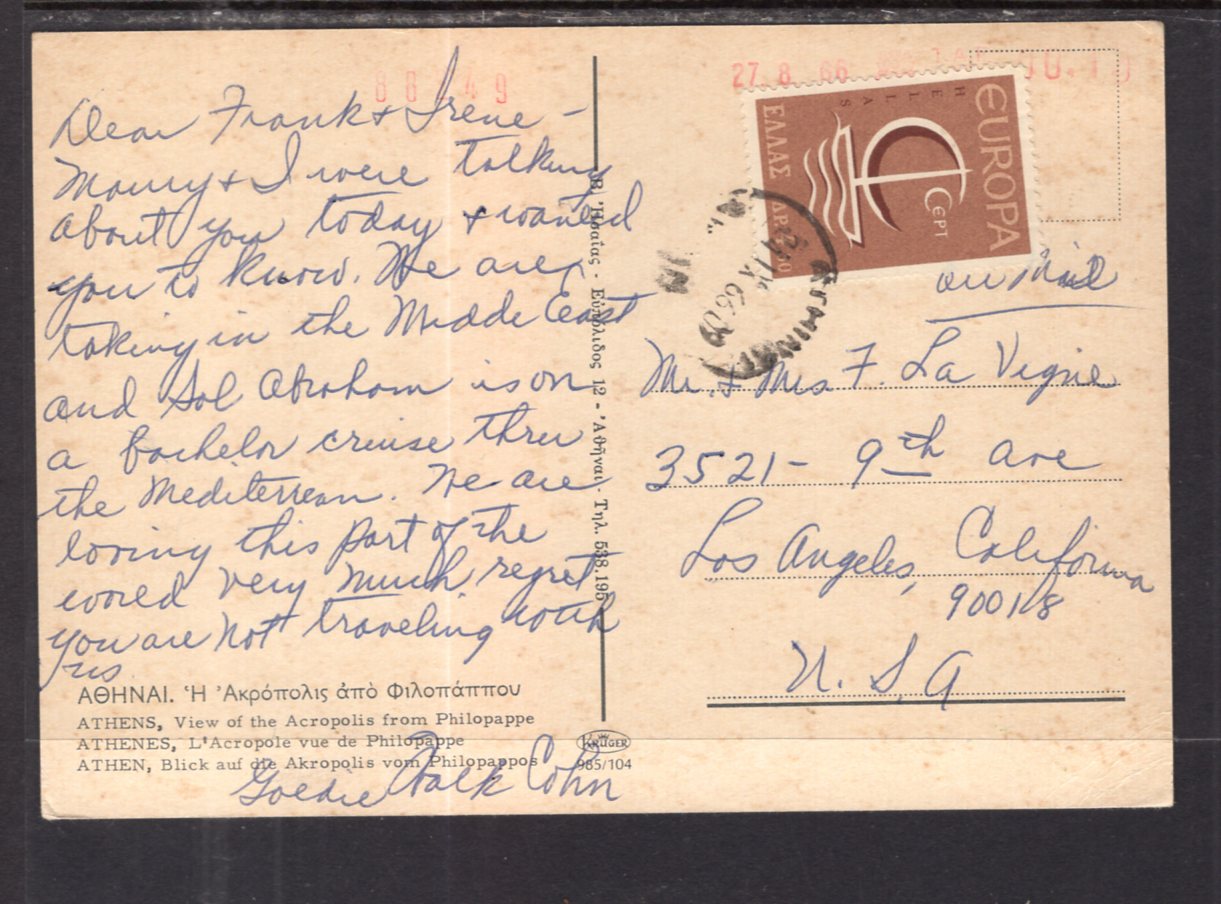 88 49
Dear Frank & Irene –
Maury & I were talking
about you today & wanted
you to know. We are
taking in the Middle East
and Sol Abraham is on
a bachelor cruise thru
the Mediterrean. We are
loving this part of the
world very much, regret
you are not traveling with
us
ΑΘΗΝΑΙ. Ἡ Ἀκρόπολις ἀπὸ Φιλοπάππου
ATHENS, View of the Acropolis from Philopappe
ATHENES, L'Acropole vue de Philopappe
ATHEN, Blick auf die Akropolis vom Philopappos
Goldie Falk Cohn
KRÜGER
985/104
Εὐπόλιδος 12 - Ἀθῆναι - Τηλ. 538.195
27.8.66
EUROPA
HELLAS
CEPT
ΕΛΛΑΣ ΔΡ
air mail
Mr. & Mrs F. La Vigne
3521 – 9th Ave
Los Angeles, California
90018
U.S.A